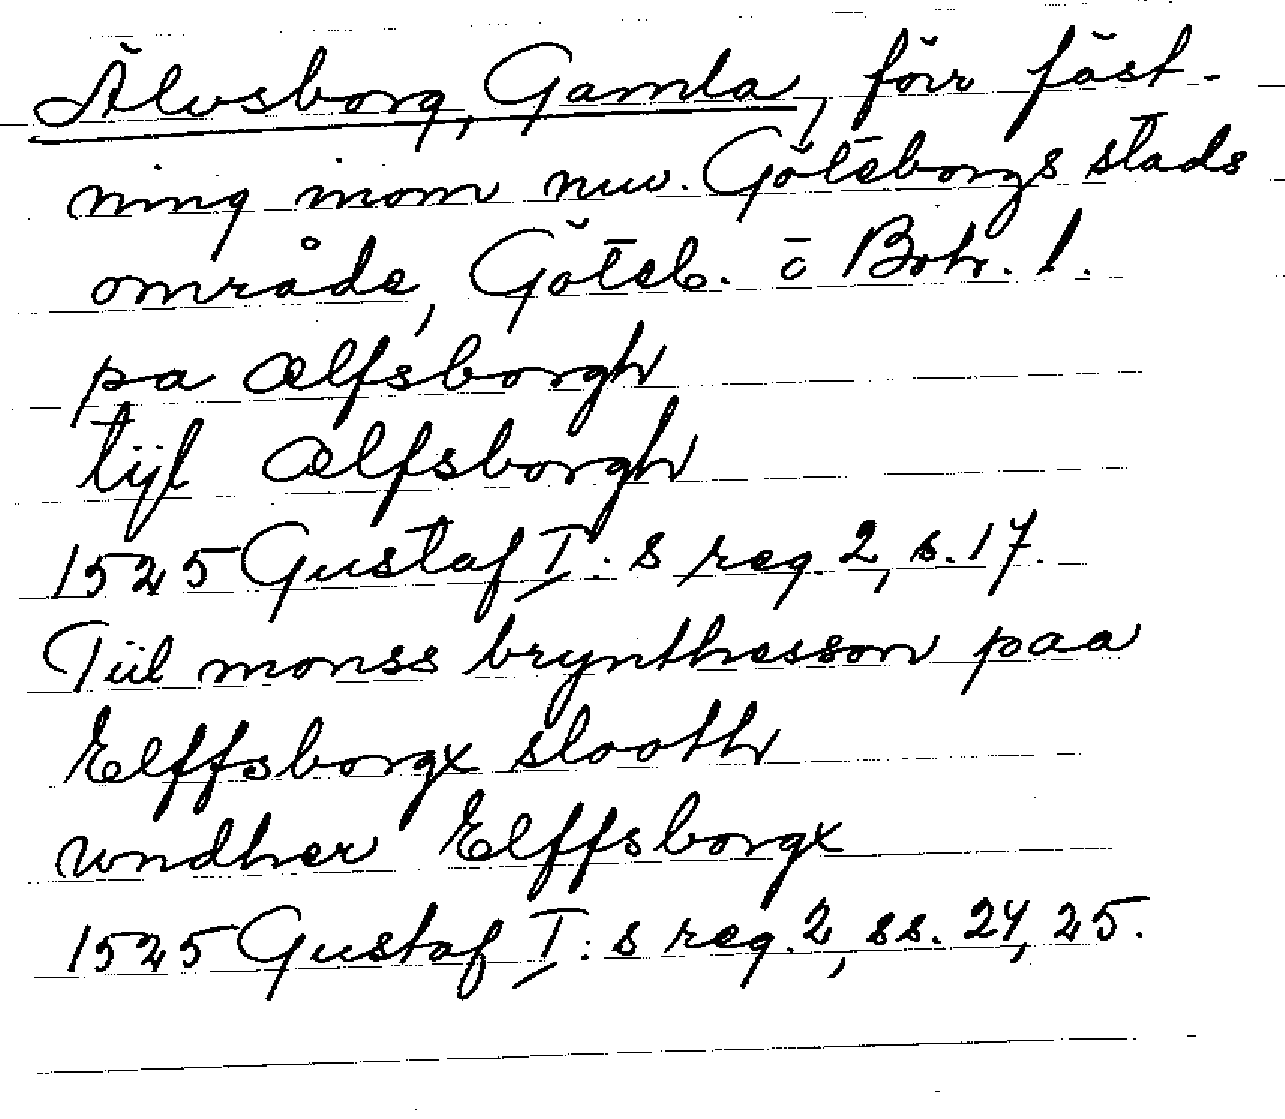 Älvsborg, Gamla, förr fäst-
ning inom nuv. Göteborgs stads
område, Göteb. o Boh. l.
pa ælfsborgh
tijl ælfsborgh
1525 Gustaf I:s reg. 2, s. 17.
Tiil monss brynthesson paa
Elffsborgx slooth
vndher Elffsborgx
1525 Gustaf I:s reg. 2, ss. 24, 25.